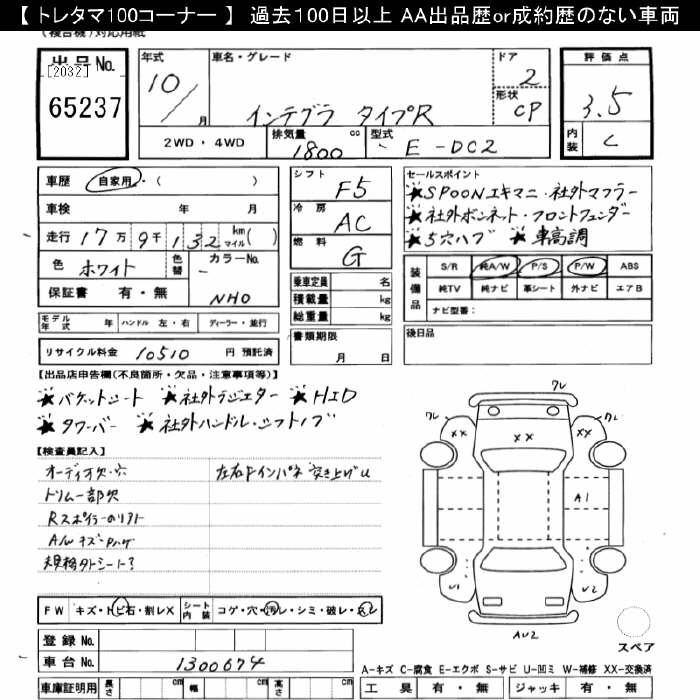 【 トレタマ100コーナー 】 過去100日以上 AA出品歴or成約歴のない車両
(複合機)対応用紙
出品No. 年式 車名・グレード ドア 評価点
[2032] 10/月 インテグラ タイプR 2 3.5
65237 形状 CP
2WD・4WD 排気量 1800 cc 型式 E-DC2 内装 C
車歴 自家用・( ) シフト F5 セールスポイント
★SPOONエキマニ・社外マフラー
車検 年 月 冷房 AC ★社外ボンネット・フロントフェンダー
走行 17万9千132 km マイル ( ) 燃料 G ★5穴ハブ ★車高調
色 ホワイト 色替 カラーNo.
保証書 有・無 NH0
乗車定員 名 装備品 S/R 純A/W P/S P/W ABS
積載量 kg 純TV 純ナビ 革シート 外ナビ エアB
総重量 kg ナビ型番:
モデル年式 年 ハンドル 左・右 ディーラー・並行
書類期限 月 日 後日品
リサイクル料金 10510 円 預託済
【出品店申告欄(不良箇所・欠品・注意事項等)】
★バケットシート ★社外ラジエター ★HID
★タワーバー ★社外ハンドル・シフトノブ
【検査員記入】
オーディオ欠・穴 左右Fインパネ突き上げU
トリム一部欠
Rスポイラーのリフト
A/Wキズ・ハゲ
規格外シート?
ワレ
ワレ ワレ
XX XX XX
A1
U1 U2
AU2
スペア
FW キズ・トビ石・割レX シート内装 コゲ・穴・汚レ・シミ・破レ・スレ
登録 No.
車台 No. 1300674
A-キズ C-腐食 E-エクボ S-サビ U-凹ミ W-補修 XX-交換済
車庫証明用 長さ cm 幅 cm 高さ cm 工具 有・無 ジャッキ 有・無